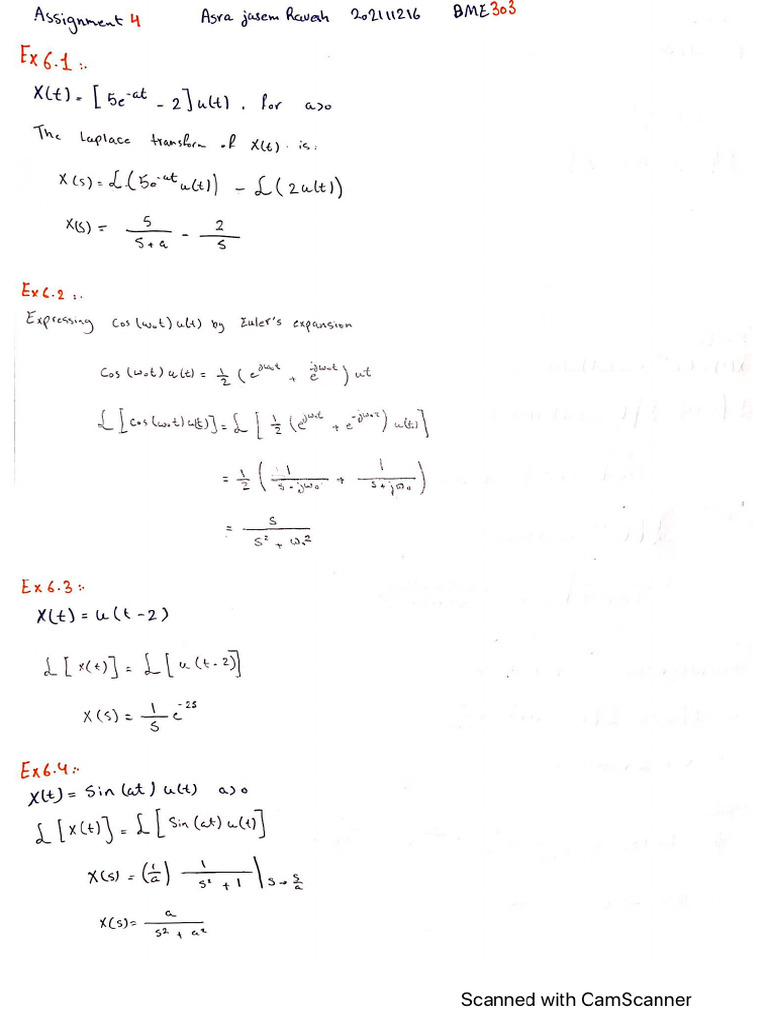 Assignment 4 Asra jasem Raweh 202111216 BME303
Ex 6.1:-
X(t) = [5e^-at - 2] u(t). for a>0
The Laplace transform of X(t) is:
X(s) = ℒ(5e^-at u(t)) - ℒ(2u(t))
X(s) = 5/(s+a) - 2/s
Ex 6.2:-
Expressing Cos(ω₀t) u(t) by Euler's expansion
Cos(ω₀t) u(t) = 1/2 (e^jω₀t + e^-jω₀t) ut
ℒ[cos(ω₀t) u(t)] = ℒ[1/2 (e^jω₀t + e^-jω₀t) u(t)]
= 1/2 (1/(s-jω₀) + 1/(s+jω₀))
= s/(s² + ω₀²)
Ex 6.3:-
X(t) = u(t-2)
ℒ[x(t)] = ℒ[u(t-2)]
X(s) = 1/s e^-2s
Ex 6.4:-
X(t) = Sin(at) u(t) a>0
ℒ[X(t)] = ℒ[Sin(at) u(t)]
X(s) = (1/a) 1/(s²+1) |s→s/a
X(s) = a/(s² + a²)
Scanned with CamScanner